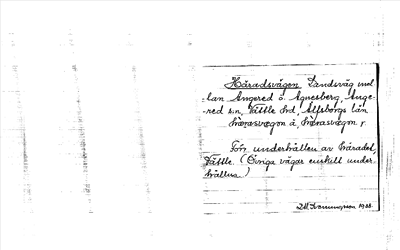 Häradsvägen. Landsväg mel-
lan Angered o. Agnesberg, Ange-
red s:n, Vättle hd, Älfsborgs län
hærasvægen å, hærasvægen,
Förr underhållen av häradet,
Vättle. (Övriga vägar enskilt under-
hållna.)
1938.